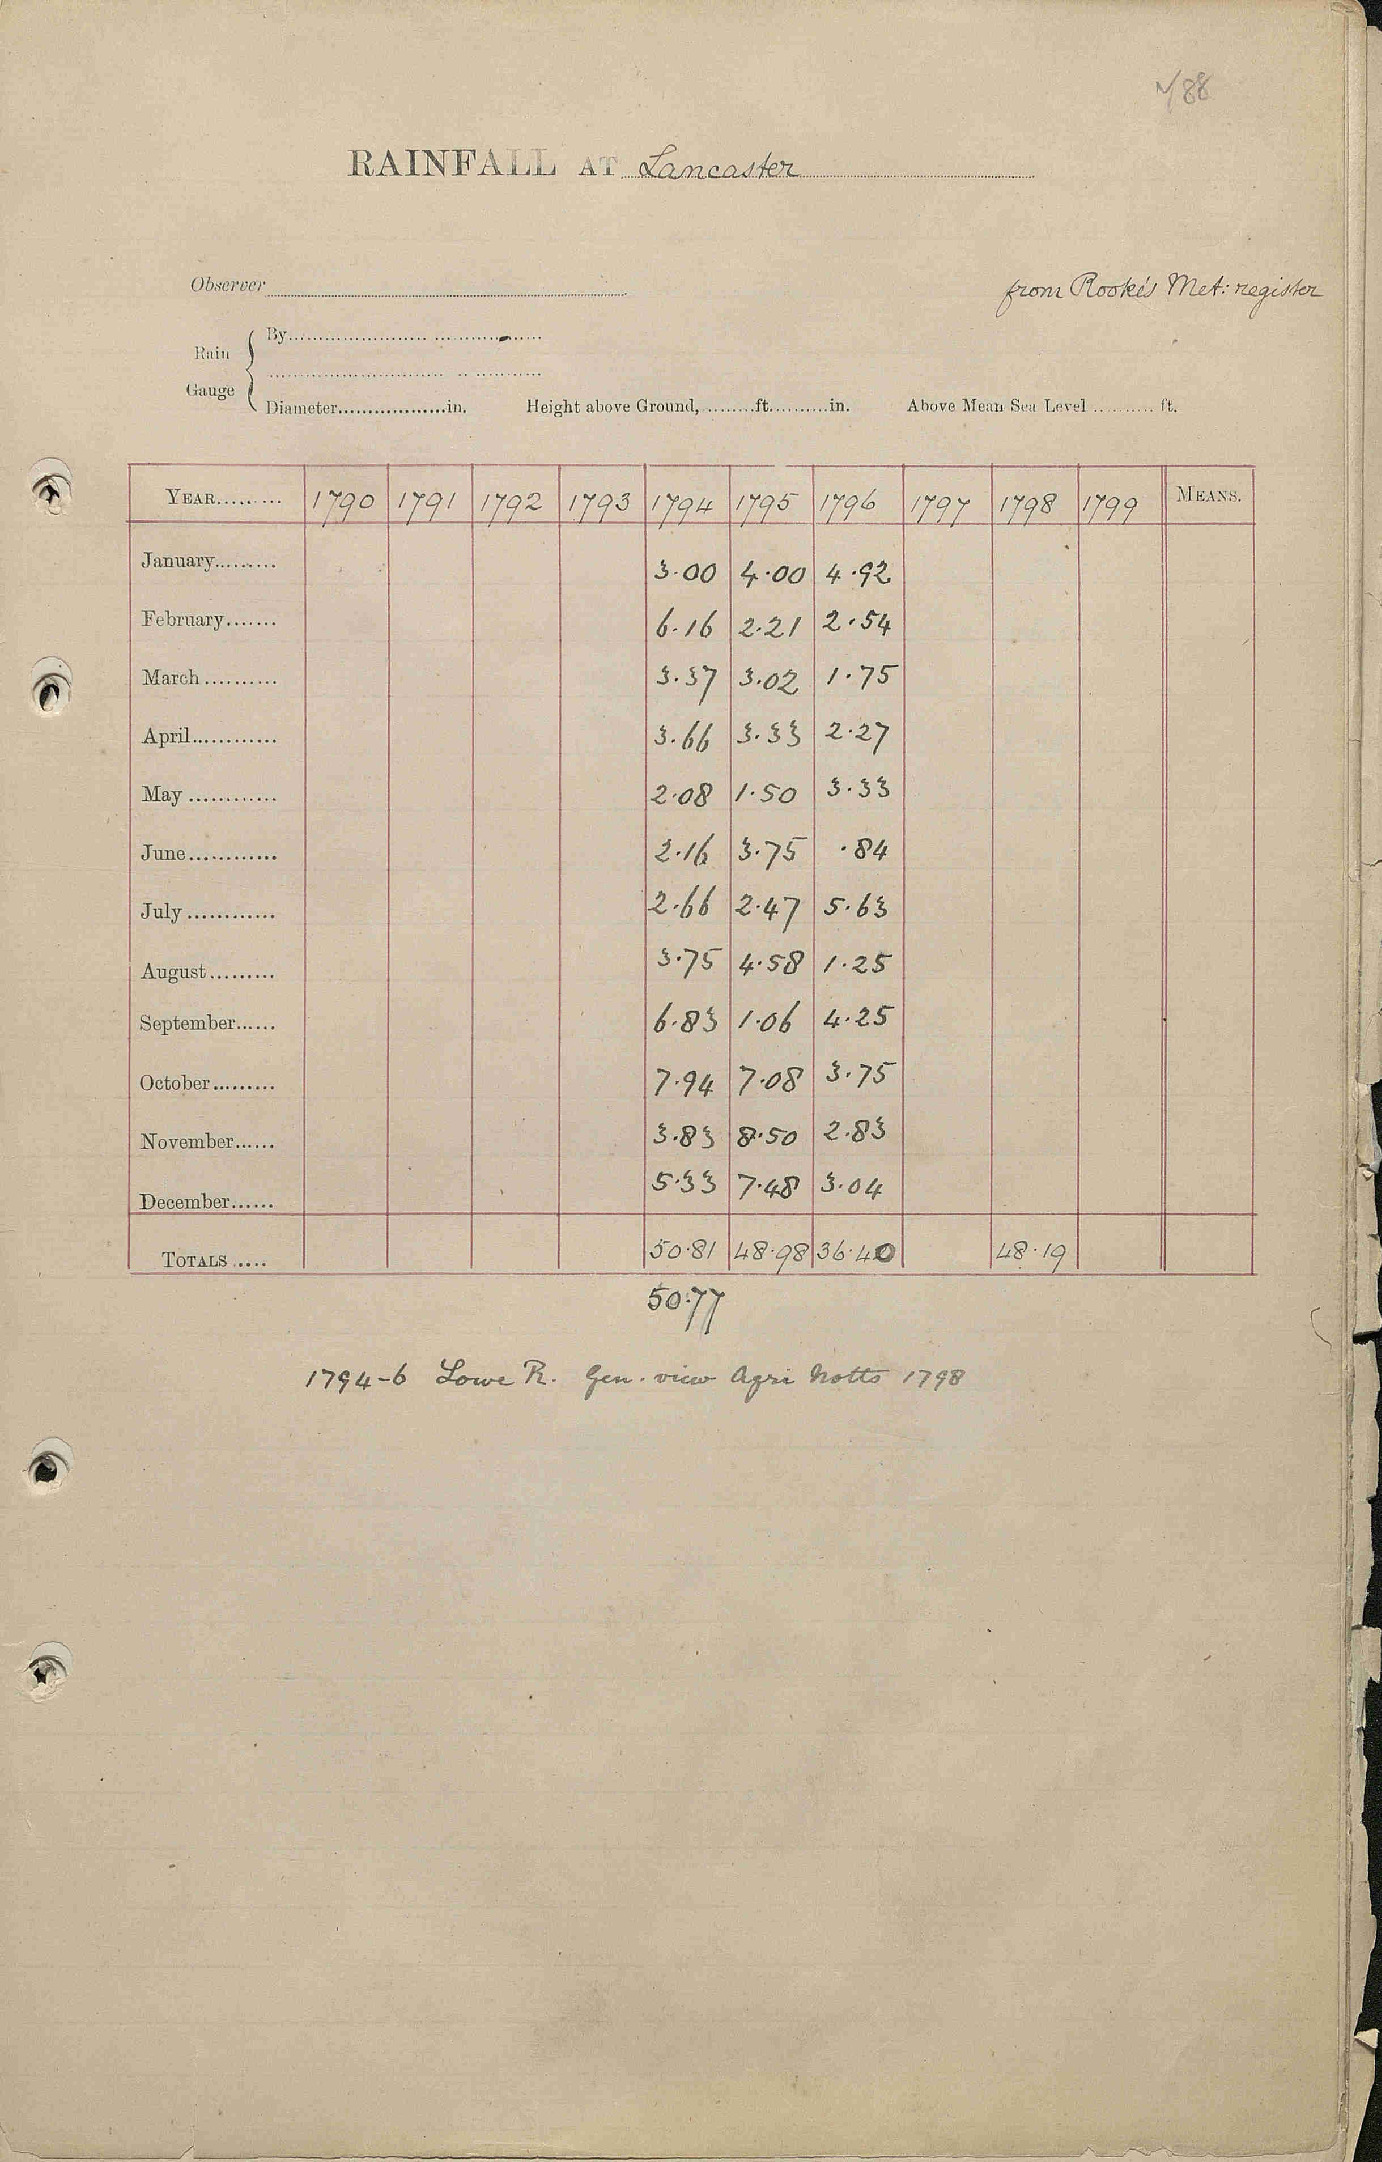 RAINFALL AT Lancaster
Observer
from Rooke's Met: register
Rain Gauge
By
Diameter in. Height above Ground, ft. in. Above Mean Sea Level ft.
YEAR 1790 1791 1792 1793 1794 1795 1796 1797 1798 1799 MEANS.
January 3.00 4.00 4.92
February 6.16 2.21 2.54
March 3.37 3.02 1.75
April 3.66 3.33 2.27
May 2.08 1.50 3.33
June 2.16 3.75 .84
July 2.66 2.47 5.63
August 3.75 4.58 1.25
September 6.83 1.06 4.25
October 7.94 7.08 3.75
November 3.83 8.50 2.83
December 5.33 7.48 3.04
TOTALS 50.81 48.98 36.40 48.19
50.77
1794-6 Lowe R. Gen. view Agri Notts 1798